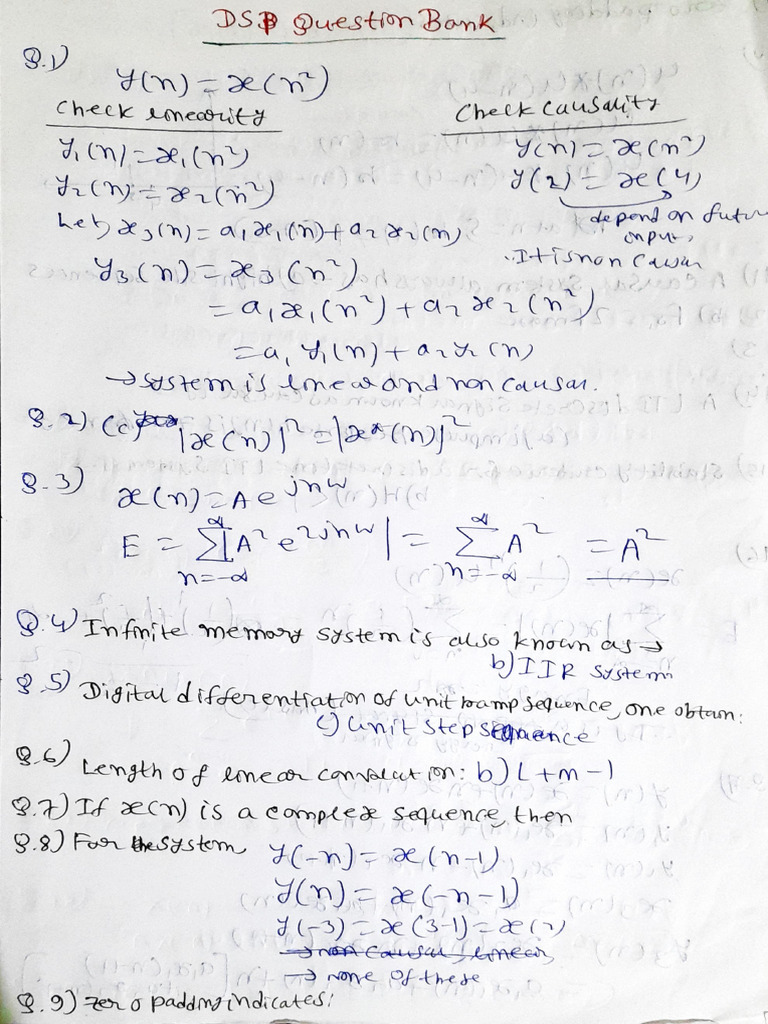 DSP Question Bank
Q.1)
y(n) = x(n²)
Check linearity
y₁(n) = x₁(n²)
y₂(n) = x₂(n²)
Let, x₃(n) = a₁x₁(n) + a₂x₂(n)
y₃(n) = x₃(n²)
= a₁x₁(n²) + a₂x₂(n²)
= a₁y₁(n) + a₂y₂(n)
→ system is linear and non causal.
Check Causality
y(n) = x(n²)
y(2) = x(4)
depend on futur
input,
∴ It is non Causal
Q.2) (c) |x(n)|² = |x*(n)|²
Q.3) x(n) = A e^{jnw}
E = ∑_{n=-∞}^{∞} |A² e^{2jnw}| = ∑_{n=-∞}^{∞} A² = A²
Q.4) Infinite memory system is also known as →
b) IIR system
Q.5) Digital differentiation of unit ramp sequence, one obtain:
c) unit step sequence
Q.6) Length of linear convolution: b) L+m-1
Q.7) If x(n) is a complex sequence, then
Q.8) For the system y(-n) = x(n-1)
y(n) = x(-n-1)
y(-3) = x(3-1) = x(2)
→ non causal, linear
→ none of these
Q.9) Zero padding indicates: